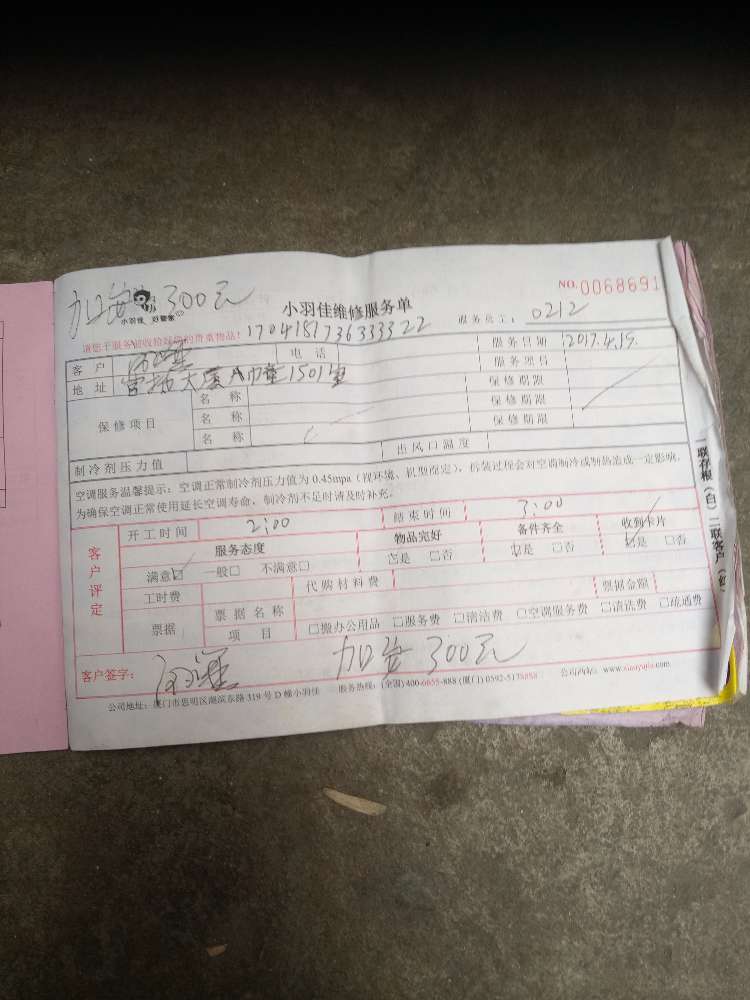 300元
小羽佳 好管家
小羽佳维修服务单
NO.0068691
请您于服务前收拾好您的贵重物品! 17041817736333322
服务员工: 0212
客户 电话 服务日期 2017.4.19.
地址 大厦 1501室 服务项目
保修项目 名称 保修期限
名称 保修期限
名称 保修期限
制冷剂压力值 出风口温度
空调服务温馨提示:空调正常制冷剂压力值为 0.45mpa (视环境、机型而定),拆装过程会对空调制冷或制热造成一定影响,
为确保空调正常使用延长空调寿命,制冷剂不足时请及时补充。
客户评定
开工时间 2:00 结束时间 3:00
服务态度 物品完好 备件齐全 收到卡片
满意☑ 一般□ 不满意□ ☑是 □否 ☑是 □否 ☑是 □否
工时费 代购材料费
票据 票据名称 票据金额
项目 □搬办公用品 □服务费 □清洁费 □空调服务费 □清洗费 □疏通费
客户签字: 300元
公司地址:厦门市思明区湖滨东路 319 号 D 幢小羽佳 服务热线:(全国) 400-6655-888 (厦门) 0592-5178858 公司网站:www.xiaoyujia.com
一联存根 (白) 二联客户 (红)